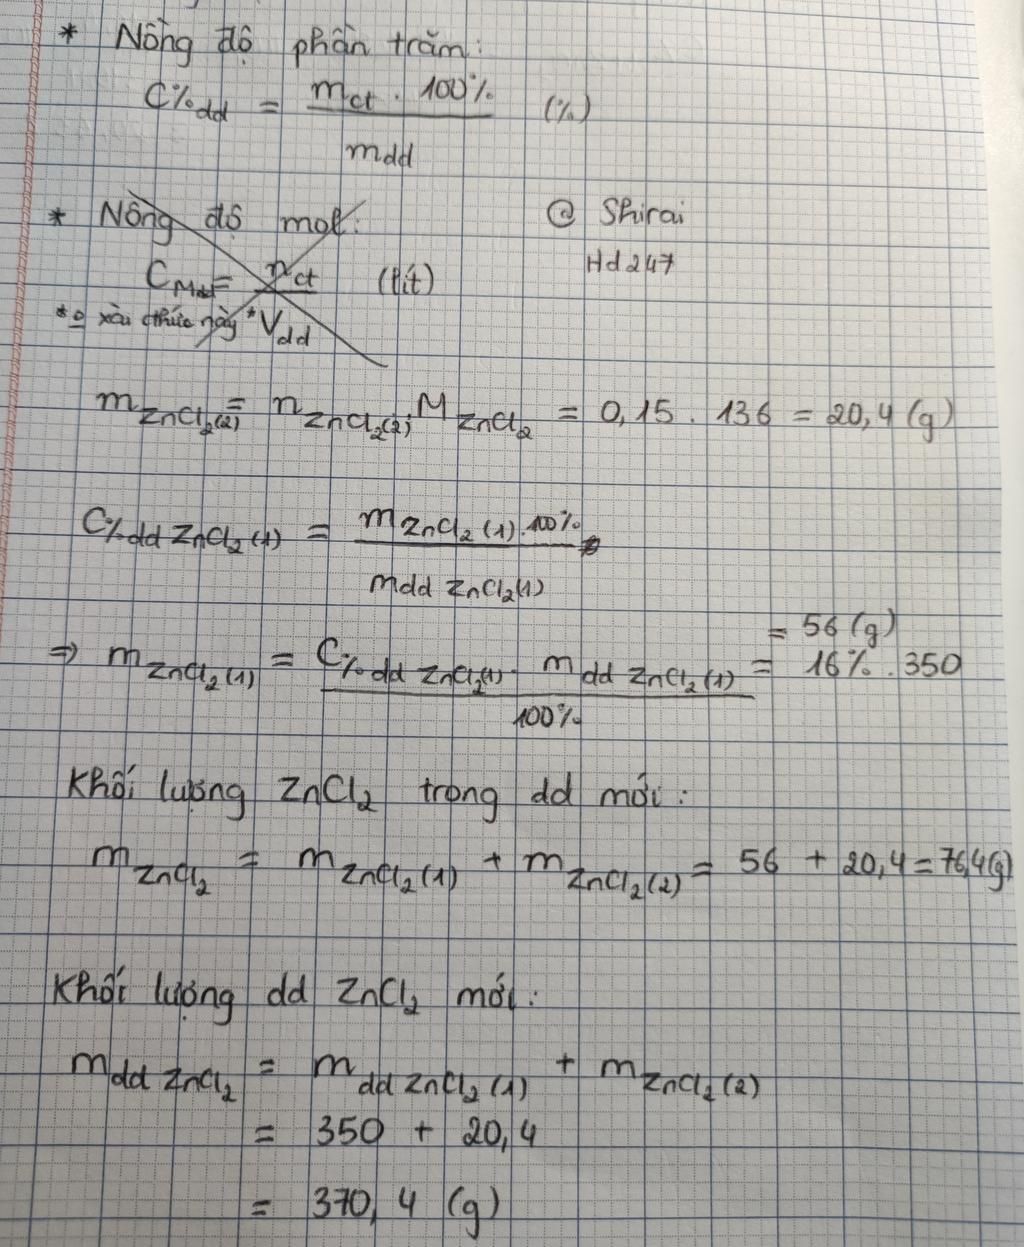 * Nồng độ phần trăm:
C%dd = mct . 100% (%)
mdd
* Nồng độ mol:
@ Shirai
CMdd = nct (lít)
Hd247
* ko xài cthức này * Vdd
mZnCl2(2) = nZnCl2(2) . MZnCl2 = 0,15 . 136 = 20,4 (g)
C%dd ZnCl2(1) = mZnCl2(1) . 100%
mdd ZnCl2(1)
= 56 (g)
⇒ mZnCl2(1) = C%dd ZnCl2(1) . mdd ZnCl2(1) = 16% . 350
100%
Khối lượng ZnCl2 trong dd mới:
mZnCl2 = mZnCl2(1) + mZnCl2(2) = 56 + 20,4 = 76,4 (g)
Khối lượng dd ZnCl2 mới:
mdd ZnCl2 = mdd ZnCl2(1) + mZnCl2(2)
= 350 + 20,4
= 370,4 (g)